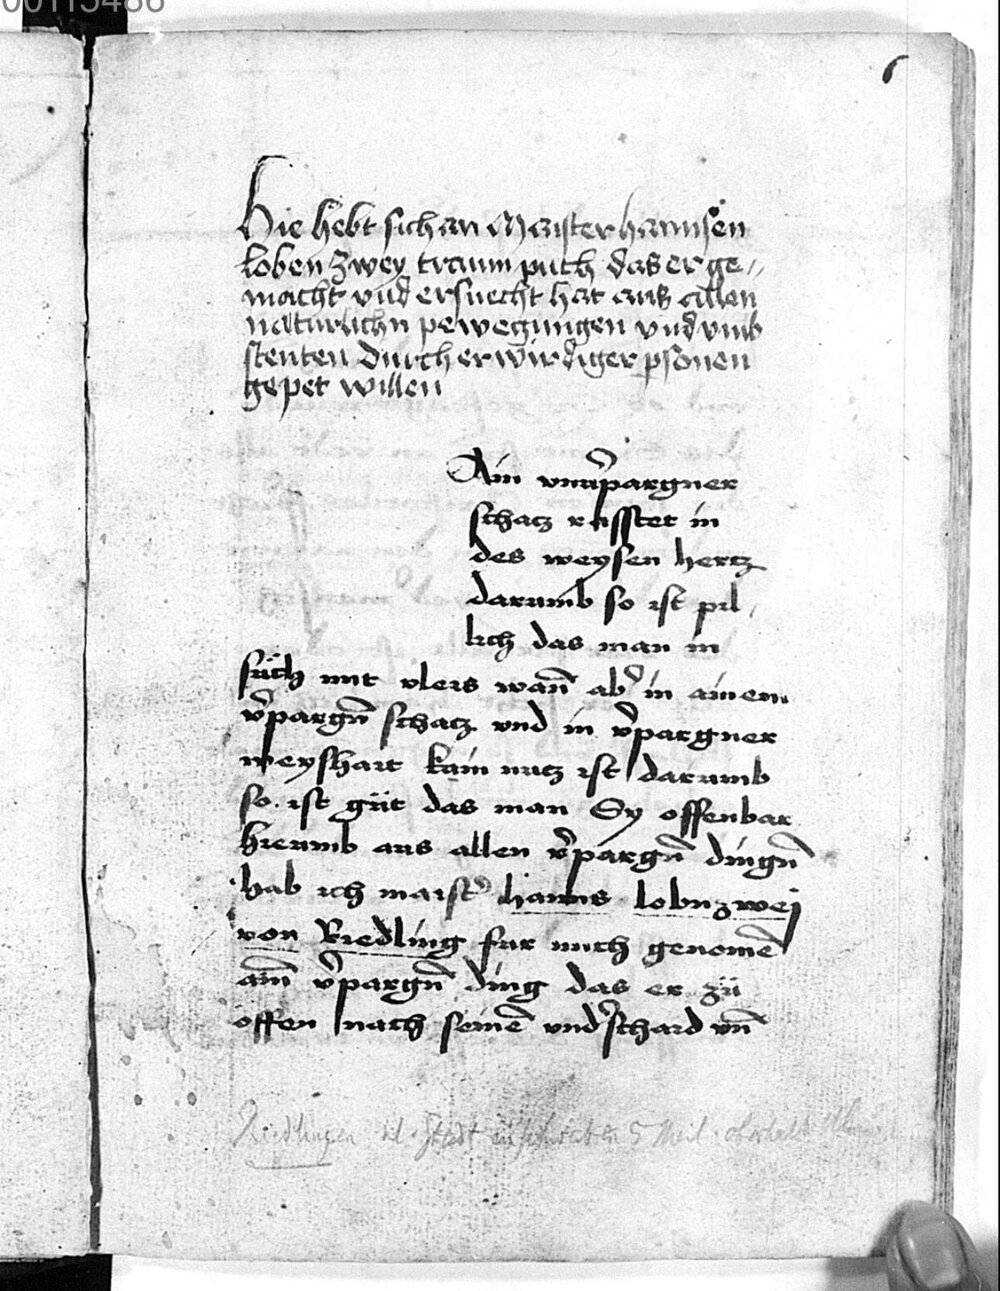 00115486
6
Hie hebt sich an Maister hannsen
loben zwey traum puch das er ge-
macht vnd ersuecht hat aus allen
naturlichn pewegungen vnd vmb
stenten durch erwirdiger psonen
gepet willen
Ain vnũpargner
schatz rasstet in
des weysen hertz
darumb so ist pil
lich das man in
sůch mit vleis wañ ab̉ in ainem
v̉pargñ schatz vnd in v̉pargner
weyshait kain nutz ist darumb
so ist gůt das man Sy offenbar
hierumb aus allen v̉pargñ dingñ
hab ich maist̉ hanns lobnzwei
von Riedling fur mich genomē
aiñ v̉pargñ ding das er zů
offen nach seinē vnd̉schaid vñ
Riedlingen Stadt in Schwaben 5 Meil oberhalb Ulm